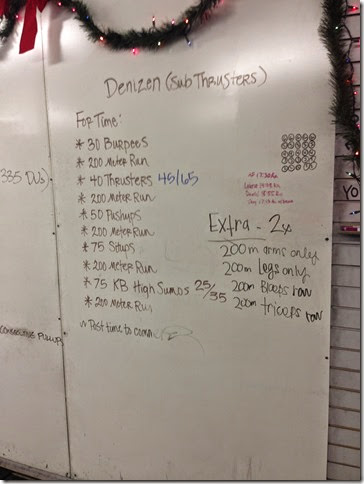 Denizen (Sub Thrusters)
For Time:
* 30 Burpees
* 200 Meter Run
* 40 Thrusters 45/65
* 200 Meter Run
* 50 Pushups
* 200 Meter Run
* 75 Situps
* 200 Meter Run
* 75 KB High Sumos 25/35
* 200 Meter Run
Post time to
335 DU's)
Extra - 2x
200m arms only
200m legs only
200m Biceps row
200m triceps row